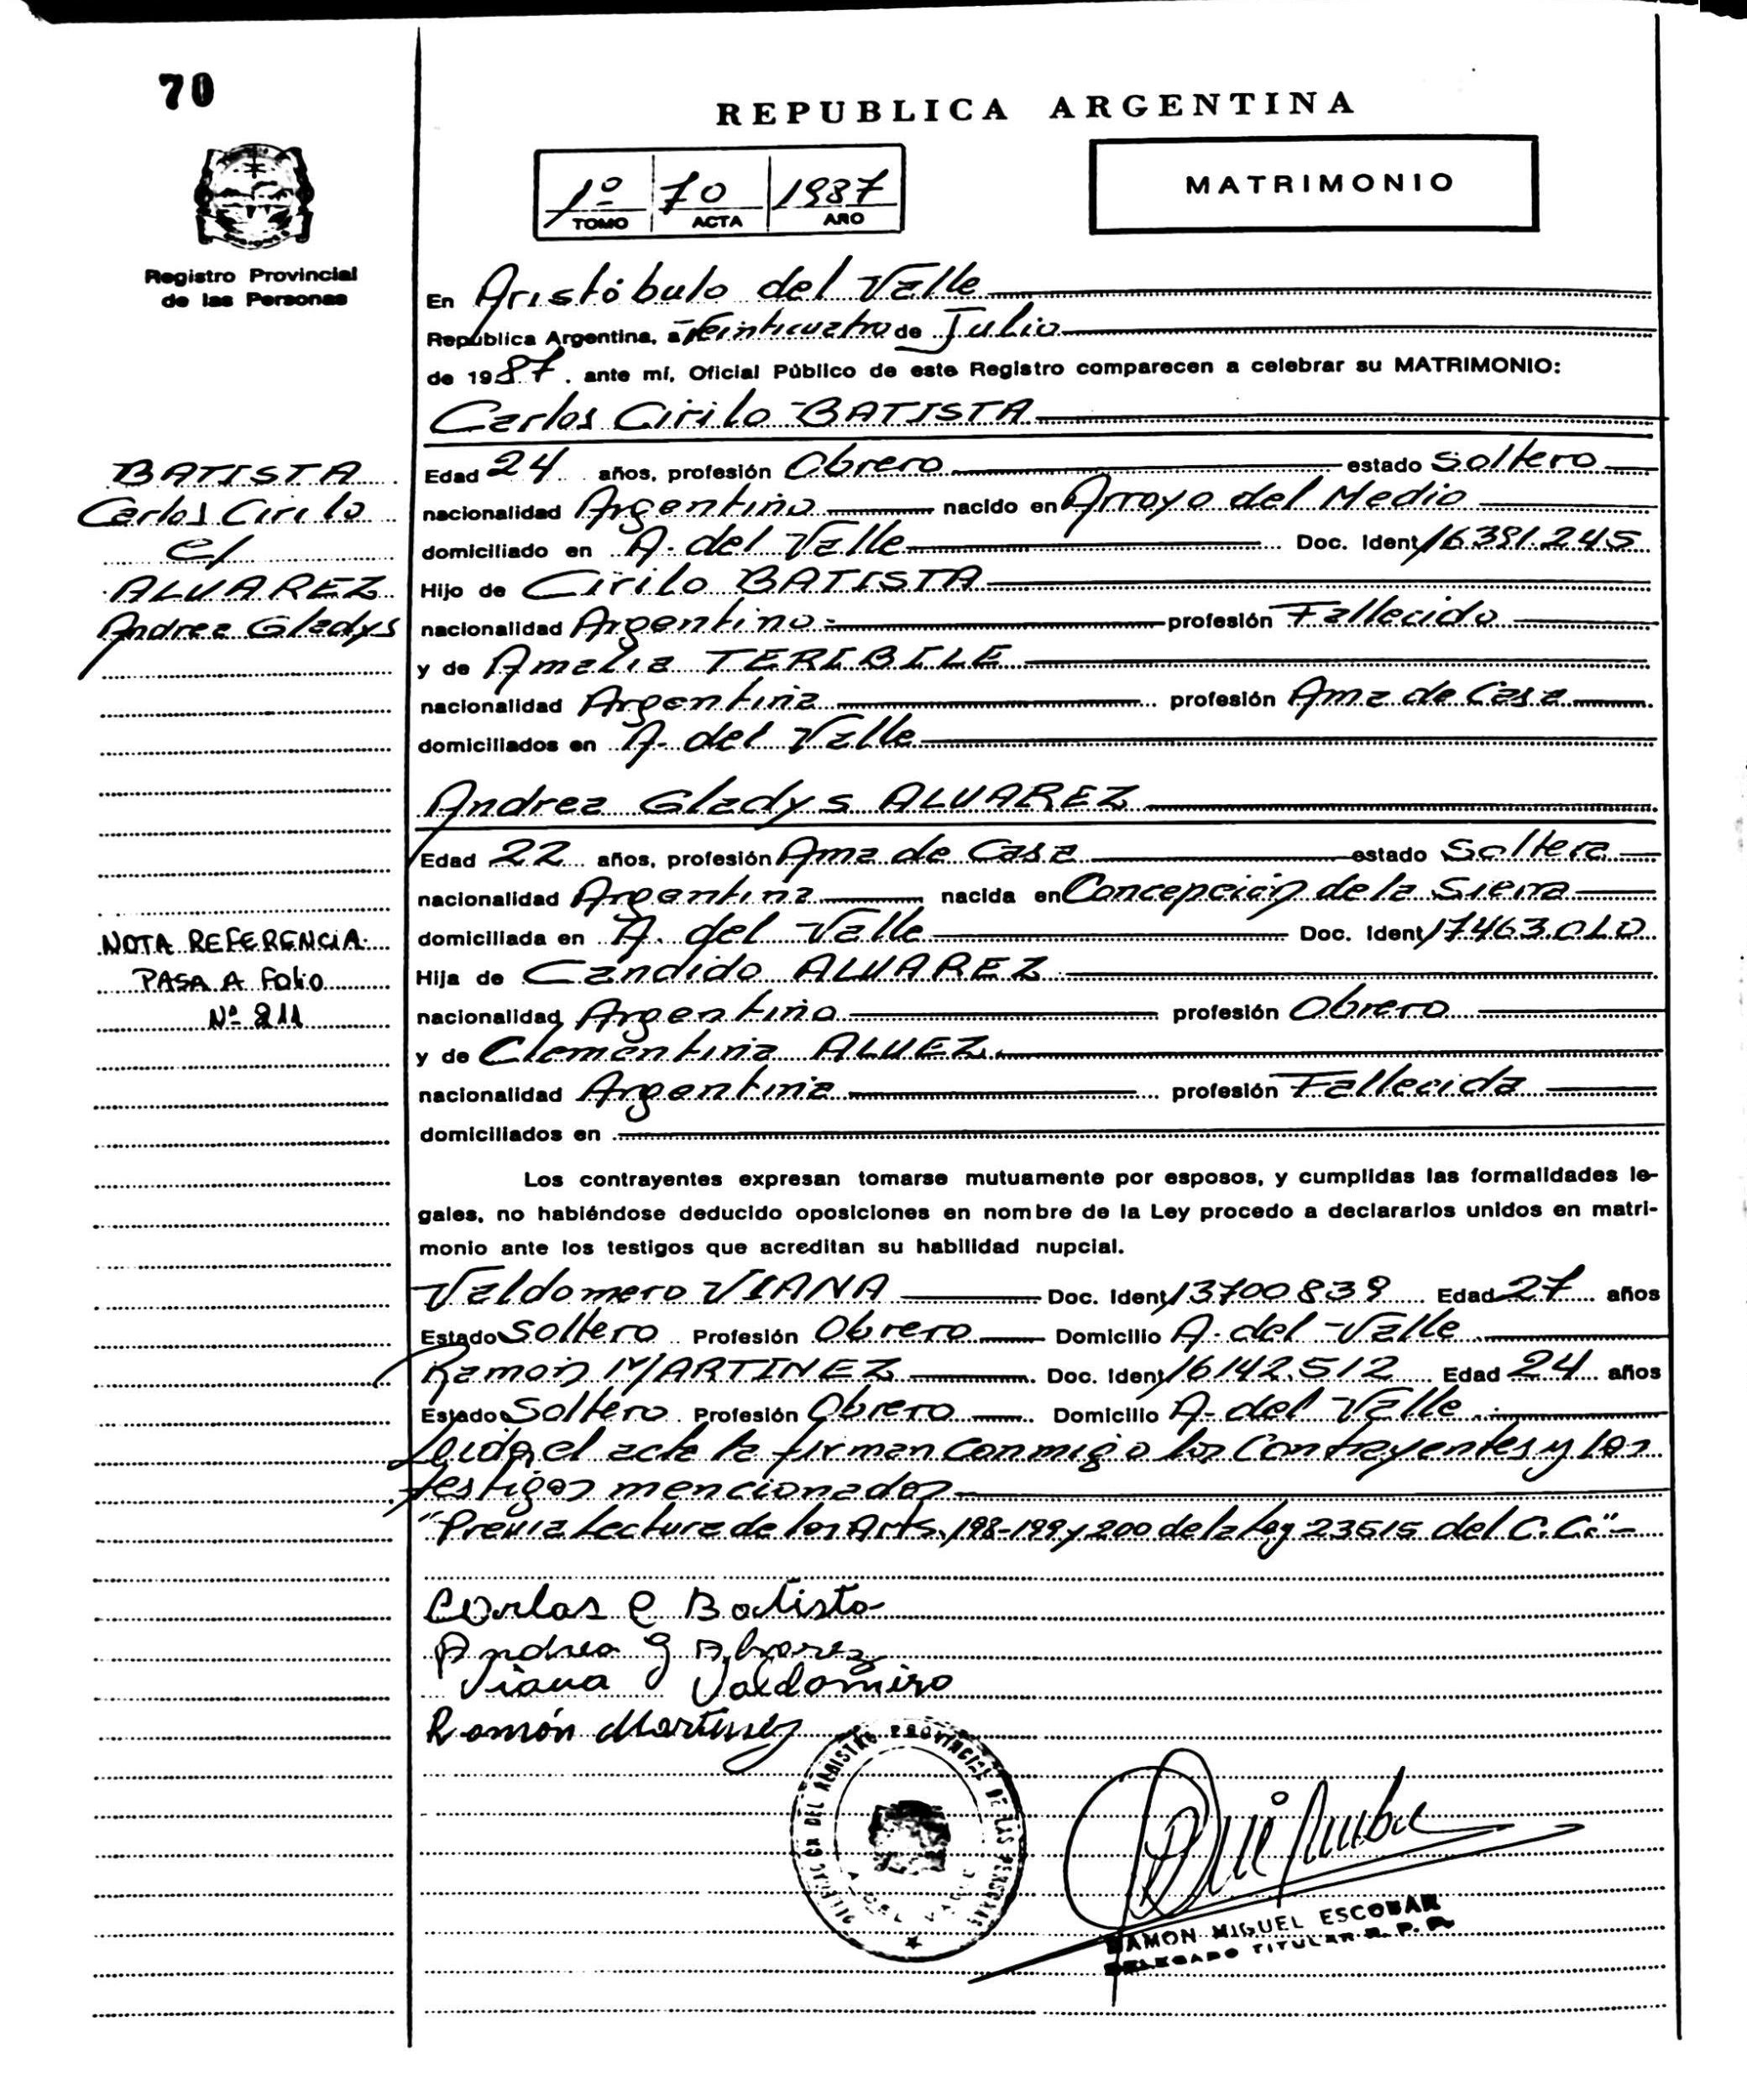 70
REPUBLICA ARGENTINA
1º 70 1987
TOMO ACTA AÑO
MATRIMONIO
Registro Provincial
de las Personas
En Aristóbulo del Valle
República Argentina, a Veinticuatro de Julio
de 1987. ante mí, Oficial Público de este Registro comparecen a celebrar su MATRIMONIO:
Carlos Cirilo BATISTA
BATISTA
Carlos Cirilo
c/
ALVAREZ
Andrea Gladys
Edad 24 años, profesión Obrero estado Soltero
nacionalidad Argentino nacido en Arroyo del Medio
domiciliado en A. del Valle Doc. Ident 16.391.245
Hijo de Cirilo BATISTA
nacionalidad Argentino profesión Fallecido
y de Amalia TERIBILE
nacionalidad Argentina profesión Ama de Casa
domiciliados en A. del Valle
Andrea Gladys ALVAREZ
Edad 22 años, profesión Ama de Casa estado Soltera
nacionalidad Argentina nacida en Concepción de la Sierra
domiciliada en A. del Valle Doc. Ident 17.463.010
Hija de Candido ALVAREZ
nacionalidad Argentino profesión Obrero
y de Clementina ALVEZ
nacionalidad Argentina profesión Fallecida
domiciliados en
NOTA REFERENCIA
PASA A FOLIO
Nº 211
Los contrayentes expresan tomarse mutuamente por esposos, y cumplidas las formalidades le-
gales, no habiéndose deducido oposiciones en nombre de la Ley procedo a declararlos unidos en matri-
monio ante los testigos que acreditan su habilidad nupcial.
Valdomero VIANA Doc. Ident 13700839 Edad 27 años
Estado Soltero Profesión Obrero Domicilio A. del Valle
Ramón MARTINEZ Doc. Ident 16142.512 Edad 24 años
Estado Soltero Profesión Obrero Domicilio A. del Valle
Leida el acta la firman conmigo los Contrayentes y los
testigos mencionados
"Previa Lectura de los Arts. 198-199 y 200 de la Ley 23515 del C.C."
Carlos C Batista
Andrea G Alvarez
Viana Valdomiro
Ramón Martinez
DELEGACION DEL REGISTRO PROVINCIAL DE LAS PERSONAS
A. DEL VALLE
RAMON MIGUEL ESCOBAR
DELEGADO TITULAR R. P. P.